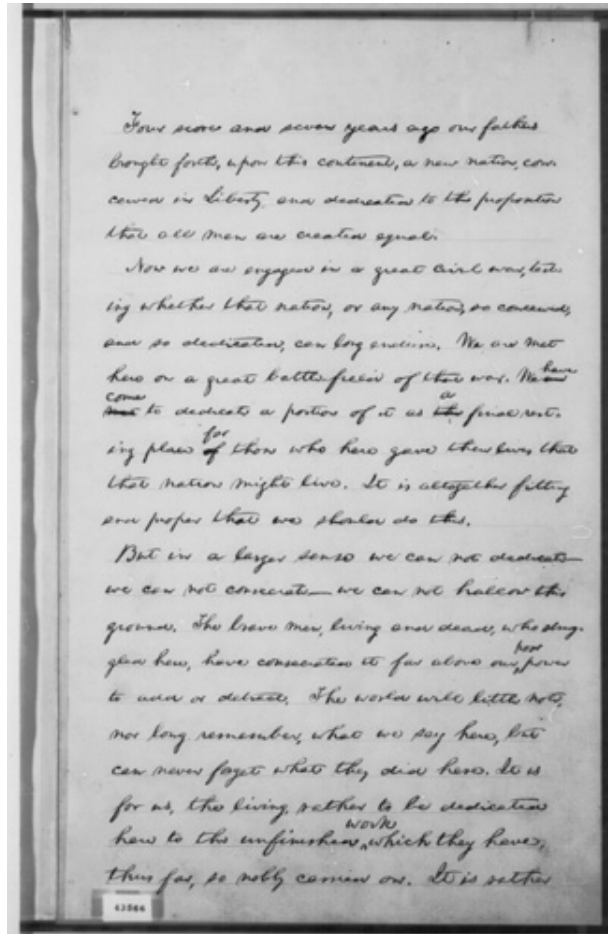 Four score and seven years ago our fathers
brought forth, upon this continent, a new nation, con-
ceived in Liberty, and dedicated to the proposition
that all men are created equal.
Now we are engaged in a great civil war, test-
ing whether that nation, or any nation, so conceived,
and so dedicated, can long endure. We are met
here on a great battle-field of that war. We are have
met come to dedicate a portion of it as the a final rest-
ing place of for those who here gave their lives that
that nation might live. It is altogether fitting
and proper that we should do this.
But in a larger sense we can not dedicate—
we can not consecrate— we can not hallow this
ground. The brave men, living and dead, who strug-
gled here, have consecrated it far above our poor power
to add or detract. The world will little note,
nor long remember, what we say here, but
can never forget what they did here. It is
for us, the living, rather to be dedicated
here to the unfinished work which they have,
thus far, so nobly carried on. It is rather
43566